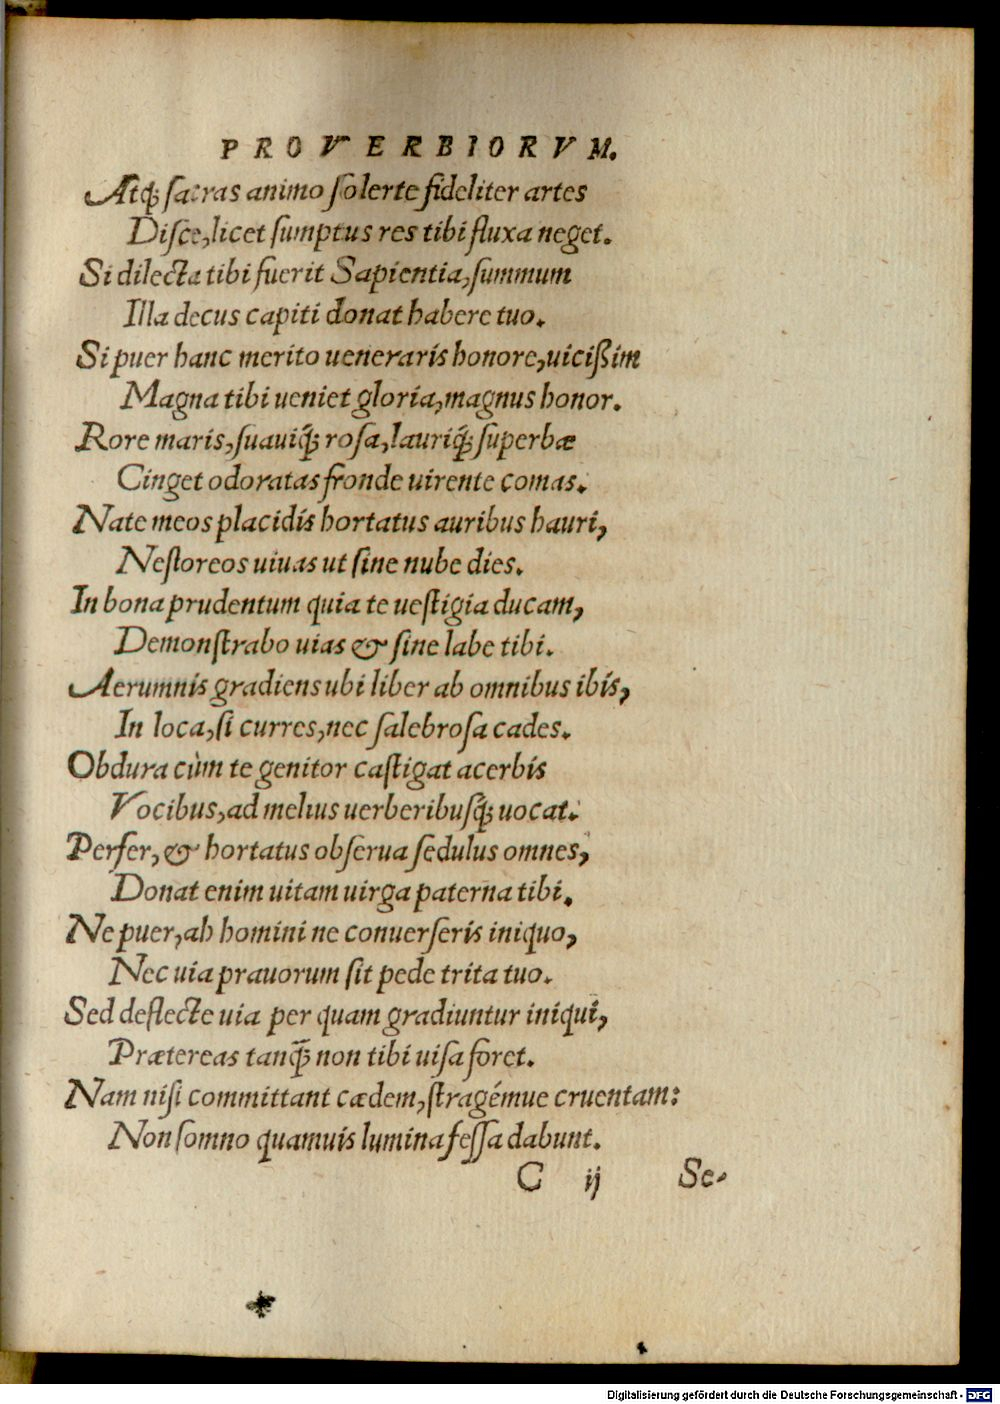 PROVERBIORVM.
Atq; sacras animo ſolerte fideliter artes
Diſce, licet ſumptus res tibi fluxa neget.
Si dilecta tibi fuerit Sapientia, ſummum
Illa decus capiti donat habere tuo.
Si puer hanc merito ueneraris honore, uicißim
Magna tibi ueniet gloria, magnus honor.
Rore maris, ſuauiq; roſa, lauriq; ſuperbæ
Cinget odoratas fronde uirente comas.
Nate meos placidis hortatus auribus hauri,
Neſtoreos uiuas ut ſine nube dies.
In bona prudentum quia te ueſtigia ducam,
Demonſtrabo uias & ſine labe tibi.
Aerumnis gradiens ubi liber ab omnibus ibis,
In loca, ſi curres, nec ſalebroſa cades.
Obdura cùm te genitor caſtigat acerbis
Vocibus, ad melius uerberibuſq; uocat.
Perfer, & hortatus obſerua ſedulus omnes,
Donat enim uitam uirga paterna tibi.
Ne puer, ah homini ne conuerſeris iniquo,
Nec uia prauorum ſit pede trita tuo.
Sed deflecte uia per quam gradiuntur iniqui,
Prætereas tanq̃ non tibi uiſa foret.
Nam niſi committant cædem, ſtragémue cruentam:
Non ſomno quamuis lumina feſſa dabunt.
C ij Se-
Digitalisierung gefördert durch die Deutsche Forschungsgemeinschaft - DFG